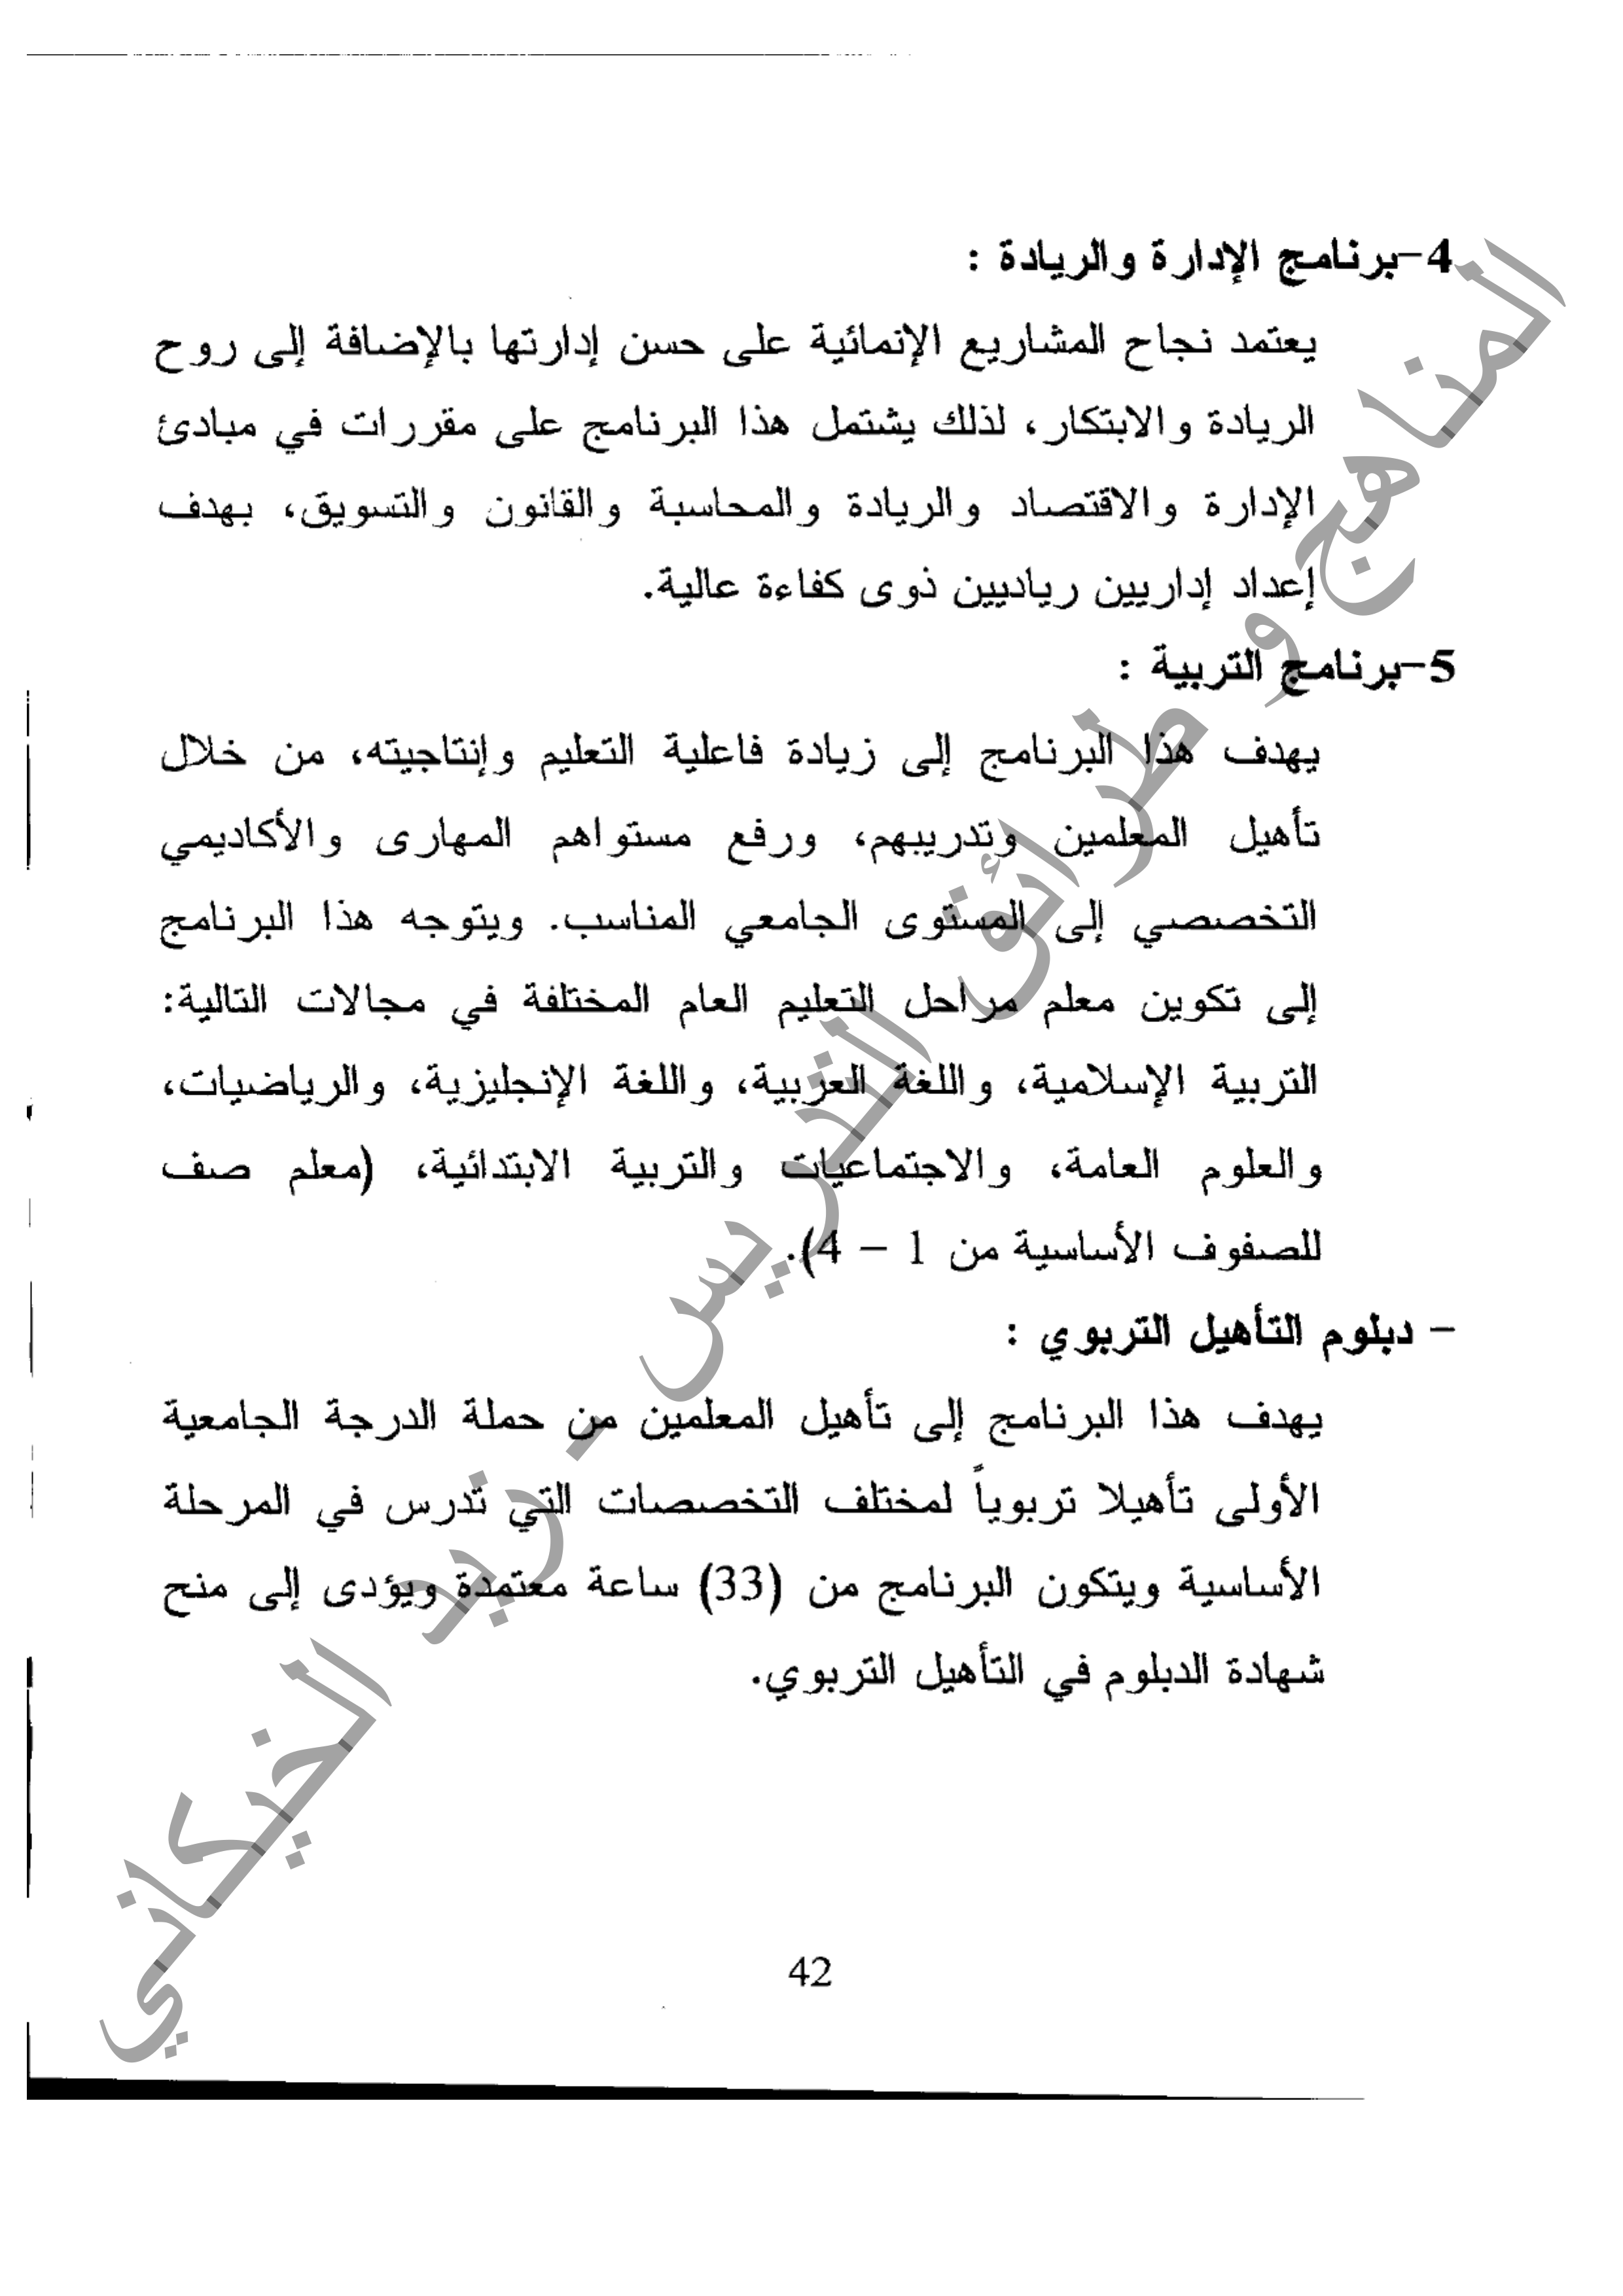 4-برنامج الإدارة والريادة :
يعتمد نجاح المشاريع الإنمائية على حسن إدارتها بالإضافة إلى روح
الريادة والابتكار، لذلك يشتمل هذا البرنامج على مقررات في مبادئ
الإدارة والاقتصاد والريادة والمحاسبة والقانون والتسويق، بهدف
إعداد إداريين رياديين ذوى كفاءة عالية.
5-برنامج التربية :
يهدف هذا البرنامج إلى زيادة فاعلية التعليم وإنتاجيته، من خلال
تأهيل المعلمين وتدريبهم، ورفع مستواهم المهارى والأكاديمي
التخصصي إلى المستوى الجامعي المناسب. ويتوجه هذا البرنامج
إلى تكوين معلم مراحل التعليم العام المختلفة في مجالات التالية:
التربية الإسلامية، واللغة العربية، واللغة الإنجليزية، والرياضيات،
والعلوم العامة، والاجتماعيات والتربية الابتدائية، (معلم صف
للصفوف الأساسية من 1 – 4).
– دبلوم التأهيل التربوي :
يهدف هذا البرنامج إلى تأهيل المعلمين من حملة الدرجة الجامعية
الأولى تأهيلا تربوياً لمختلف التخصصات التي تدرس في المرحلة
الأساسية ويتكون البرنامج من (33) ساعة معتمدة ويؤدى إلى منح
شهادة الدبلوم في التأهيل التربوي.
42
المناهج و طرائق التدريس - زيد الخيكاني